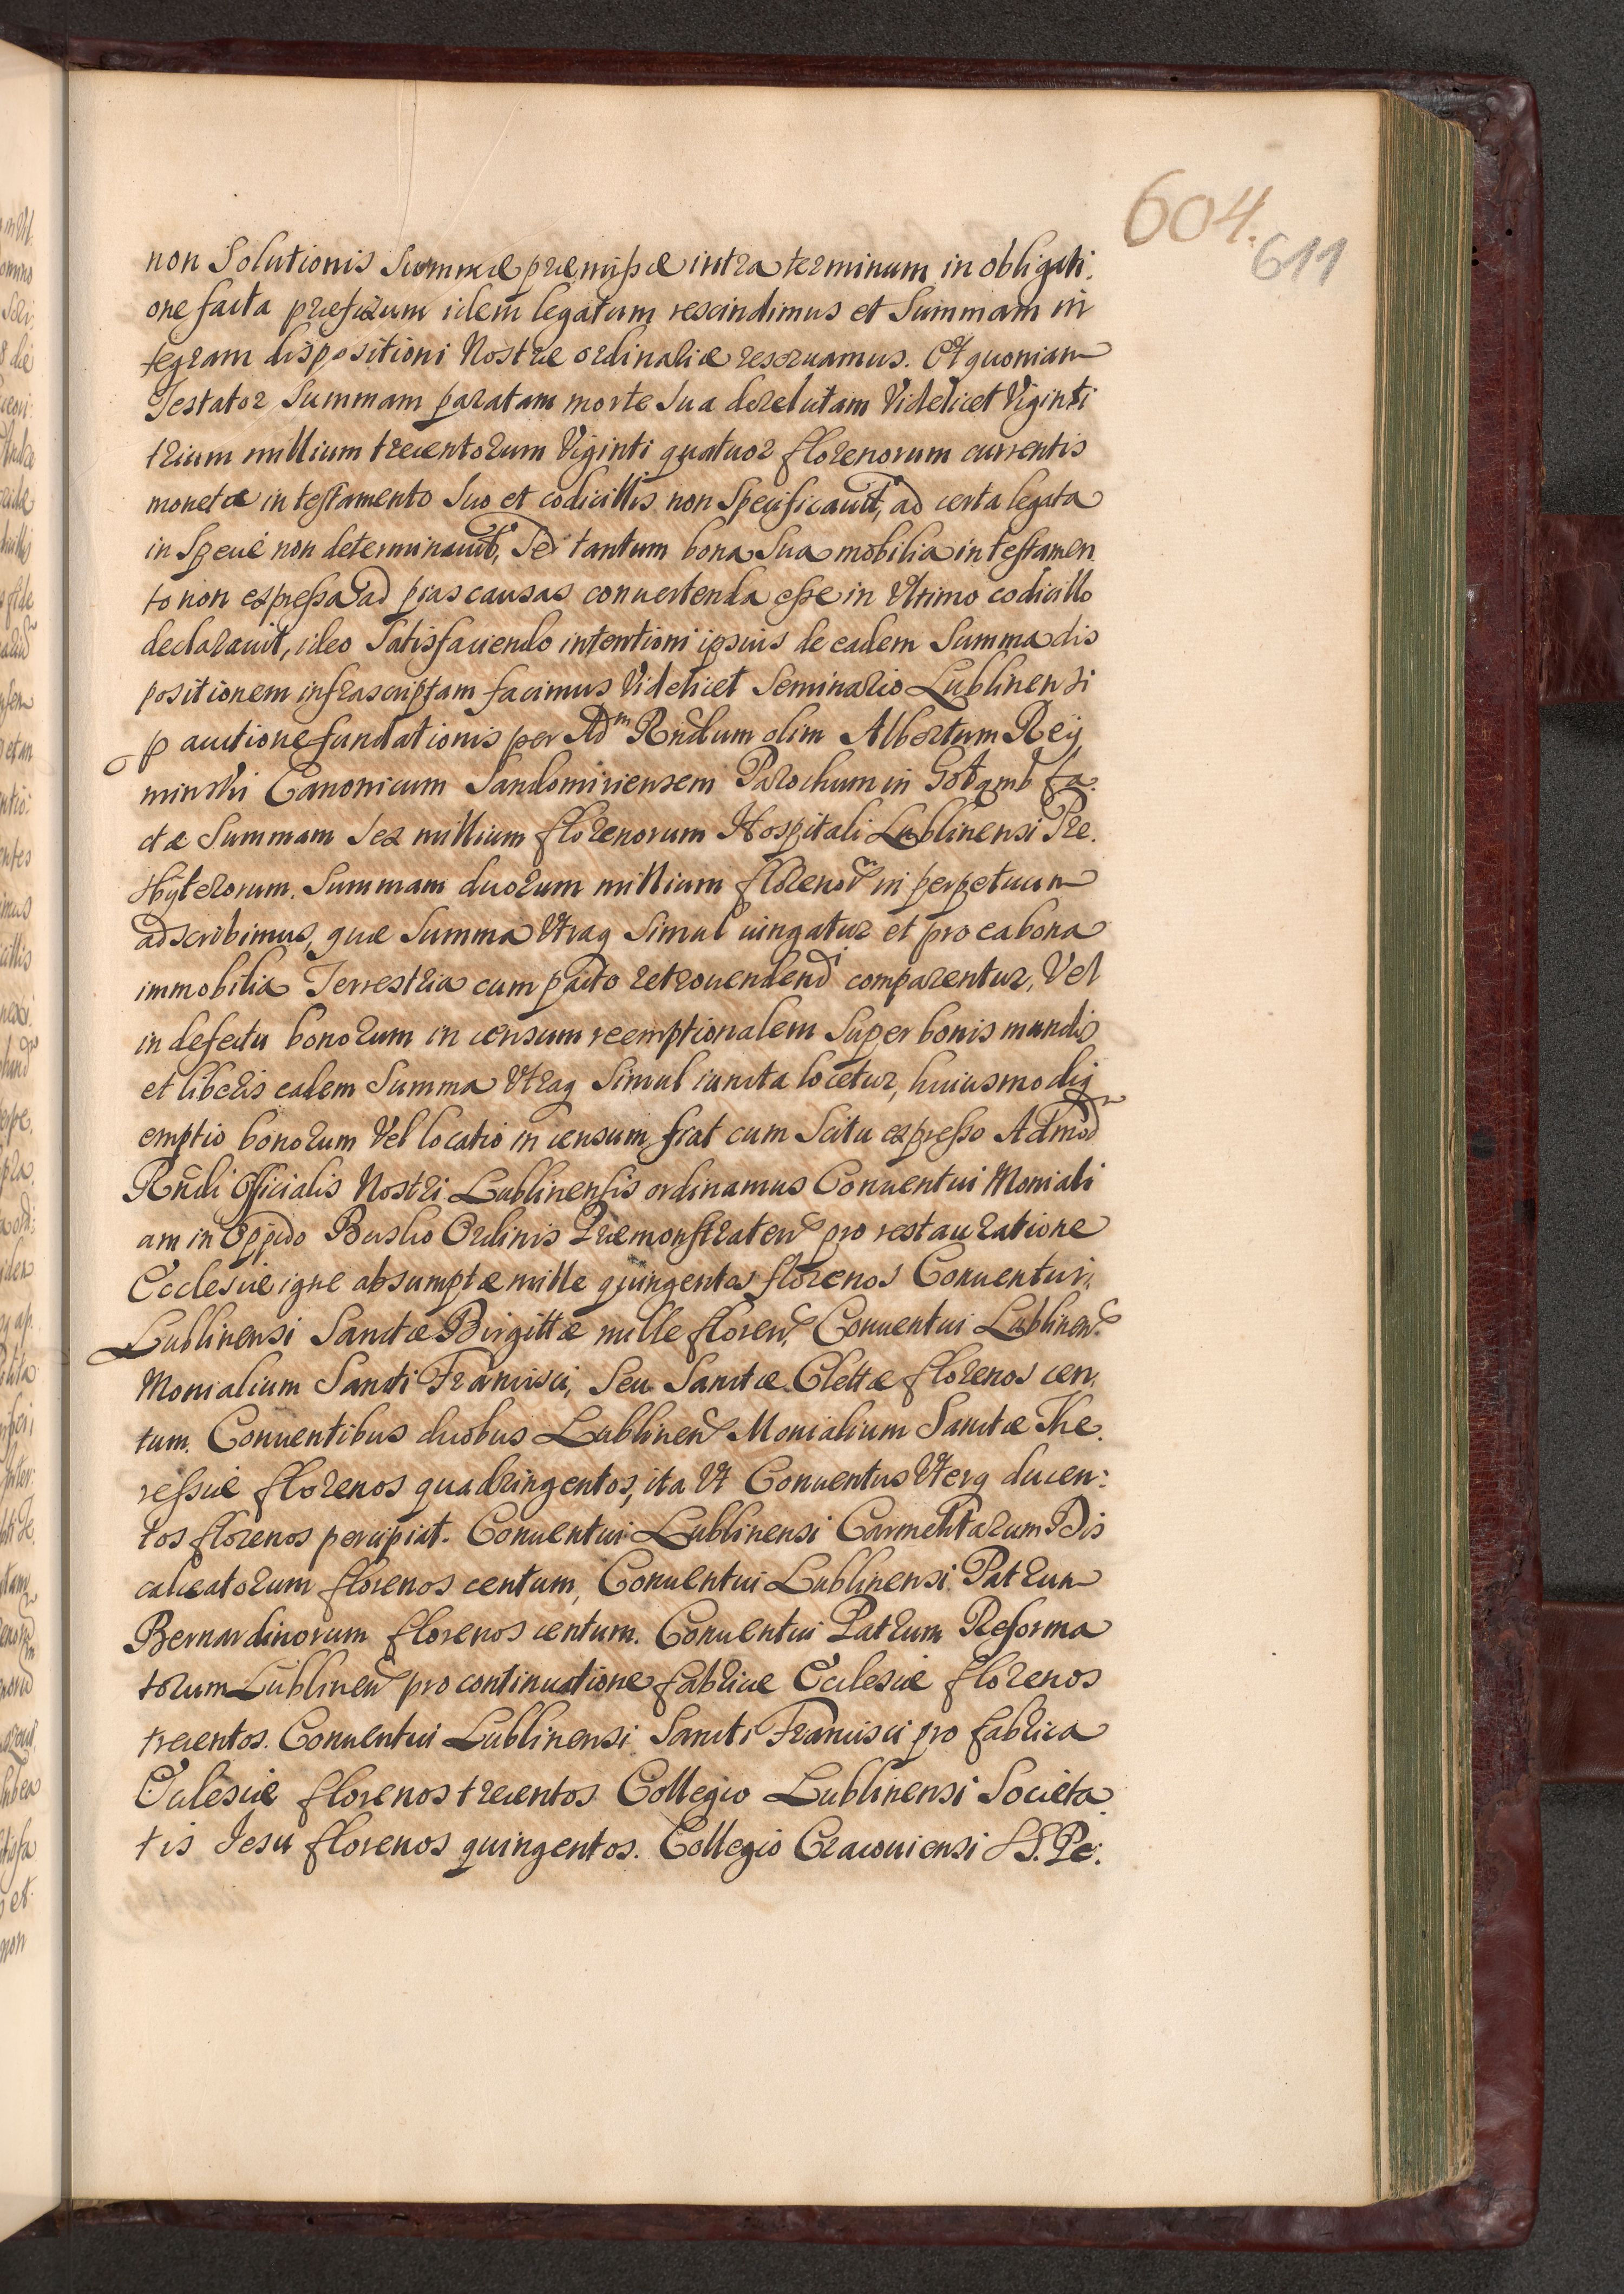 604.
611
non Solutionis Summæ præmissæ intra terminum in obligati.
one facta præfixum idem legatum rescindimus et Summam in
tegram dispositioni Nostræ ordinariæ reseruamus. Et quoniam
Testator Summam paratam morte Sua derelictam Videlicet Viginti
trium millium trecentorum Viginti quatuor florenorum currentis
monetæ in testamento Suo et codicillis non Specificauit, ad certa legata
in Specie non determinauit, Sed tantum bona Sua mobilia in testamen
to non expressa ad pias causas conuertenda esse in Vltimo codicillo
declarauit, ideo Satisfaciendo intentioni ipsius de eadem Summa dis
positionem infrascriptam facimus Videlicet Seminario Lublinensi
p auctione fundationis per Adm Rndum olim Albertum Rey
minski Canonicum Sandomiriensem Parochum in Gołąmb fa.
ctæ Summam Sex millium florenorum Hospitali Lublinensi Pre.
sbÿterorum. Summam duorum millium floreno in perpetuum
adscribimus, quæ Summa Vtraq Simul iungatur et pro ea bona
immobilia Terrestria cum pacto retrouendendi comparentur, Vel
in defectu bonorum in censum reemptionalem Super bonis mundis
et liberis eadem Summa Vtraq Simul iuncta locetur, huiusmodiq
emptio bonorum Vel locatio in censum fiat cum Scitu expresso Admod
Rndi Officialis Nostri Lublinensis ordinamus Conuentui Moniali
am in Oppido Busko Ordinis Præmonstraten pro restauratione
Ecclesiæ igne absumptæ mille quingentos florenos Conuentui,
Lublinensi Sanctæ Birgittæ mille floren, Conuentui Lublinen
Monialium Sancti Francisci, Seu Sanctæ Clettæ florenos cen,
tum. Conuentibus duobus Lublinen Monialium Sanctæ The.
ressiæ florenos quadringentos, ita Vt Conuentus Vterq ducen:
tos florenos percipiat. Conuentui Lublinensi Carmelitarum Dis
calceatorum florenos centum, Conuentui Lublinensi Patrum
Bernardinorum florenos centum. Conuentui Patrum Reforma
torum Lublinen pro continuatione fabricæ Ecclesiæ florenos
trecentos. Conuentui Lublinensi Sancti Francisci pro fabrica
Ecclesiæ florenos trecentos Collegio Lublinensi Societa
tis Jesu florenos quingentos. Collegio Cracouiensi SS. Pe: